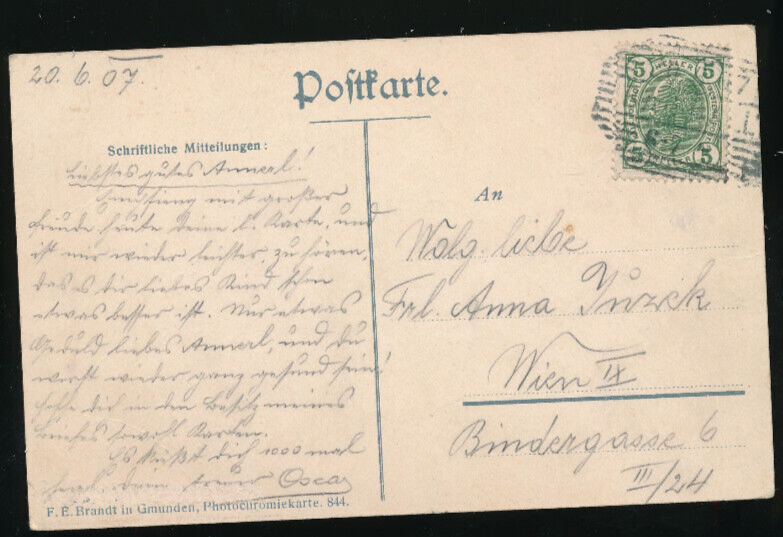 20. 6. 07.
Postkarte.
5 HELLER 5
5 HELLER 5
Schriftliche Mitteilungen:
Liebstes gutes Annerl!
Empfieng mit großer
Freude heute deine l. Karte, und
ist mir wieder leichter, zu hören,
das es dir liebes Kind schon
etwas besser ist. Nur etwas
Geduld liebes Annerl, und du
wirst wieder ganz gesund sein!
hoffe dich in den Besitz meines
Briefes sowohl Karten.
Es küßt dich 1000 mal
dein treuer Oscar
An
liebe
Frl. Anna
Wien IX
Bindergasse 6
III/24
F. E. Brandt in Gmunden, Photochromiekarte. 844.